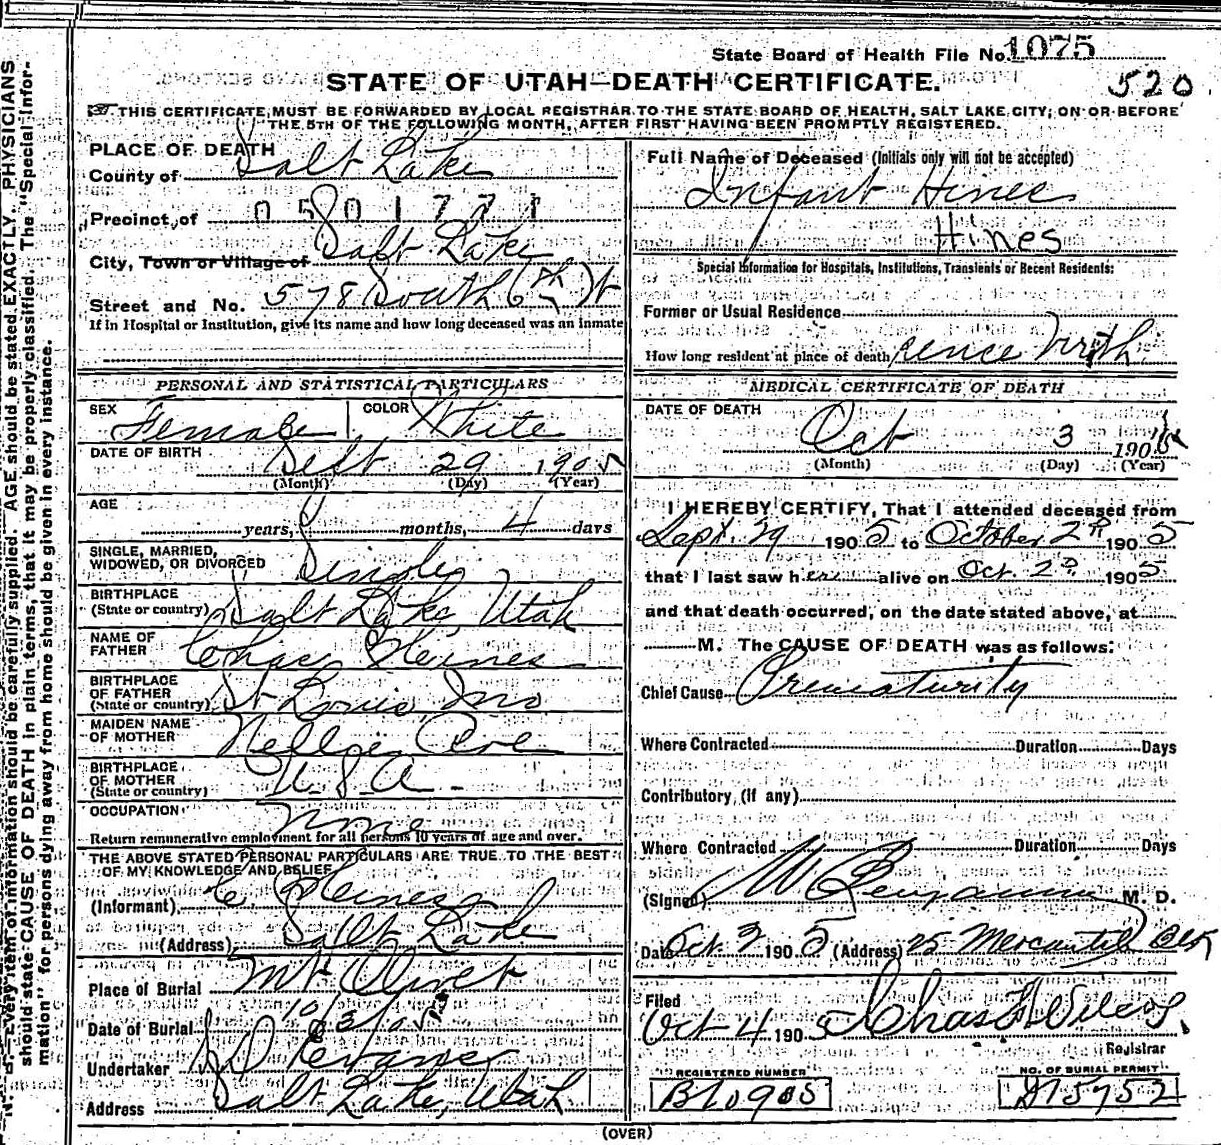 State Board of Health File No. 1075
520
STATE OF UTAH—DEATH CERTIFICATE.
THIS CERTIFICATE MUST BE FORWARDED BY LOCAL REGISTRAR TO THE STATE BOARD OF HEALTH, SALT LAKE CITY, ON OR BEFORE
THE 5TH OF THE FOLLOWING MONTH, AFTER FIRST HAVING BEEN PROMPTLY REGISTERED.
PLACE OF DEATH
County of Salt Lake
Precinct of
City, Town or Village of Salt Lake
Street and No. 578 South 6th St
If in Hospital or Institution, give its name and how long deceased was an inmate
PERSONAL AND STATISTICAL PARTICULARS
SEX Female COLOR White
DATE OF BIRTH Sept 29 1905
(Month) (Day) (Year)
AGE years, months, 4 days
SINGLE, MARRIED,
WIDOWED, OR DIVORCED Single
BIRTHPLACE
(State or country) Salt Lake, Utah
NAME OF
FATHER Heines
BIRTHPLACE
OF FATHER
(State or country) St Louis Mo
MAIDEN NAME
OF MOTHER Nellie
BIRTHPLACE
OF MOTHER
(State or country) U. S. A.
OCCUPATION None
Return remunerative employment for all persons 10 years of age and over.
THE ABOVE STATED PERSONAL PARTICULARS ARE TRUE TO THE BEST
OF MY KNOWLEDGE AND BELIEF
(Informant) C. Heines
(Address) Salt Lake
Place of Burial Mt Olivet
Date of Burial 10/3/05
Undertaker Evans
Address Salt Lake, Utah
Full Name of Deceased (Initials only will not be accepted)
Infant Hines
Hines
Special Information for Hospitals, Institutions, Transients or Recent Residents:
Former or Usual Residence
How long resident at place of death sence birth
MEDICAL CERTIFICATE OF DEATH
DATE OF DEATH
Oct 3 190
(Month) (Day) (Year)
I HEREBY CERTIFY, That I attended deceased from
Sept. 29 1905 to October 2d 1905
that I last saw her alive on Oct. 2d 1905
and that death occurred, on the date stated above, at
M. The CAUSE OF DEATH was as follows:
Chief Cause Prematurity
Where Contracted Duration Days
Contributory, (if any)
Where Contracted Duration Days
(Signed) M. D.
Date Oct 3 1905 (Address) 25 Mercantile Blk
Filed
Oct 4 1905 Chas Wilcox,
Registrar
REGISTERED NUMBER
B10905
NO. OF BURIAL PERMIT
D15752
(OVER)
N. B.—Every item of information should be carefully supplied. AGE should be stated EXACTLY. PHYSICIANS
should state CAUSE OF DEATH in plain terms, that it may be properly classified. The "Special Infor-
mation" for persons dying away from home should be given in every instance.